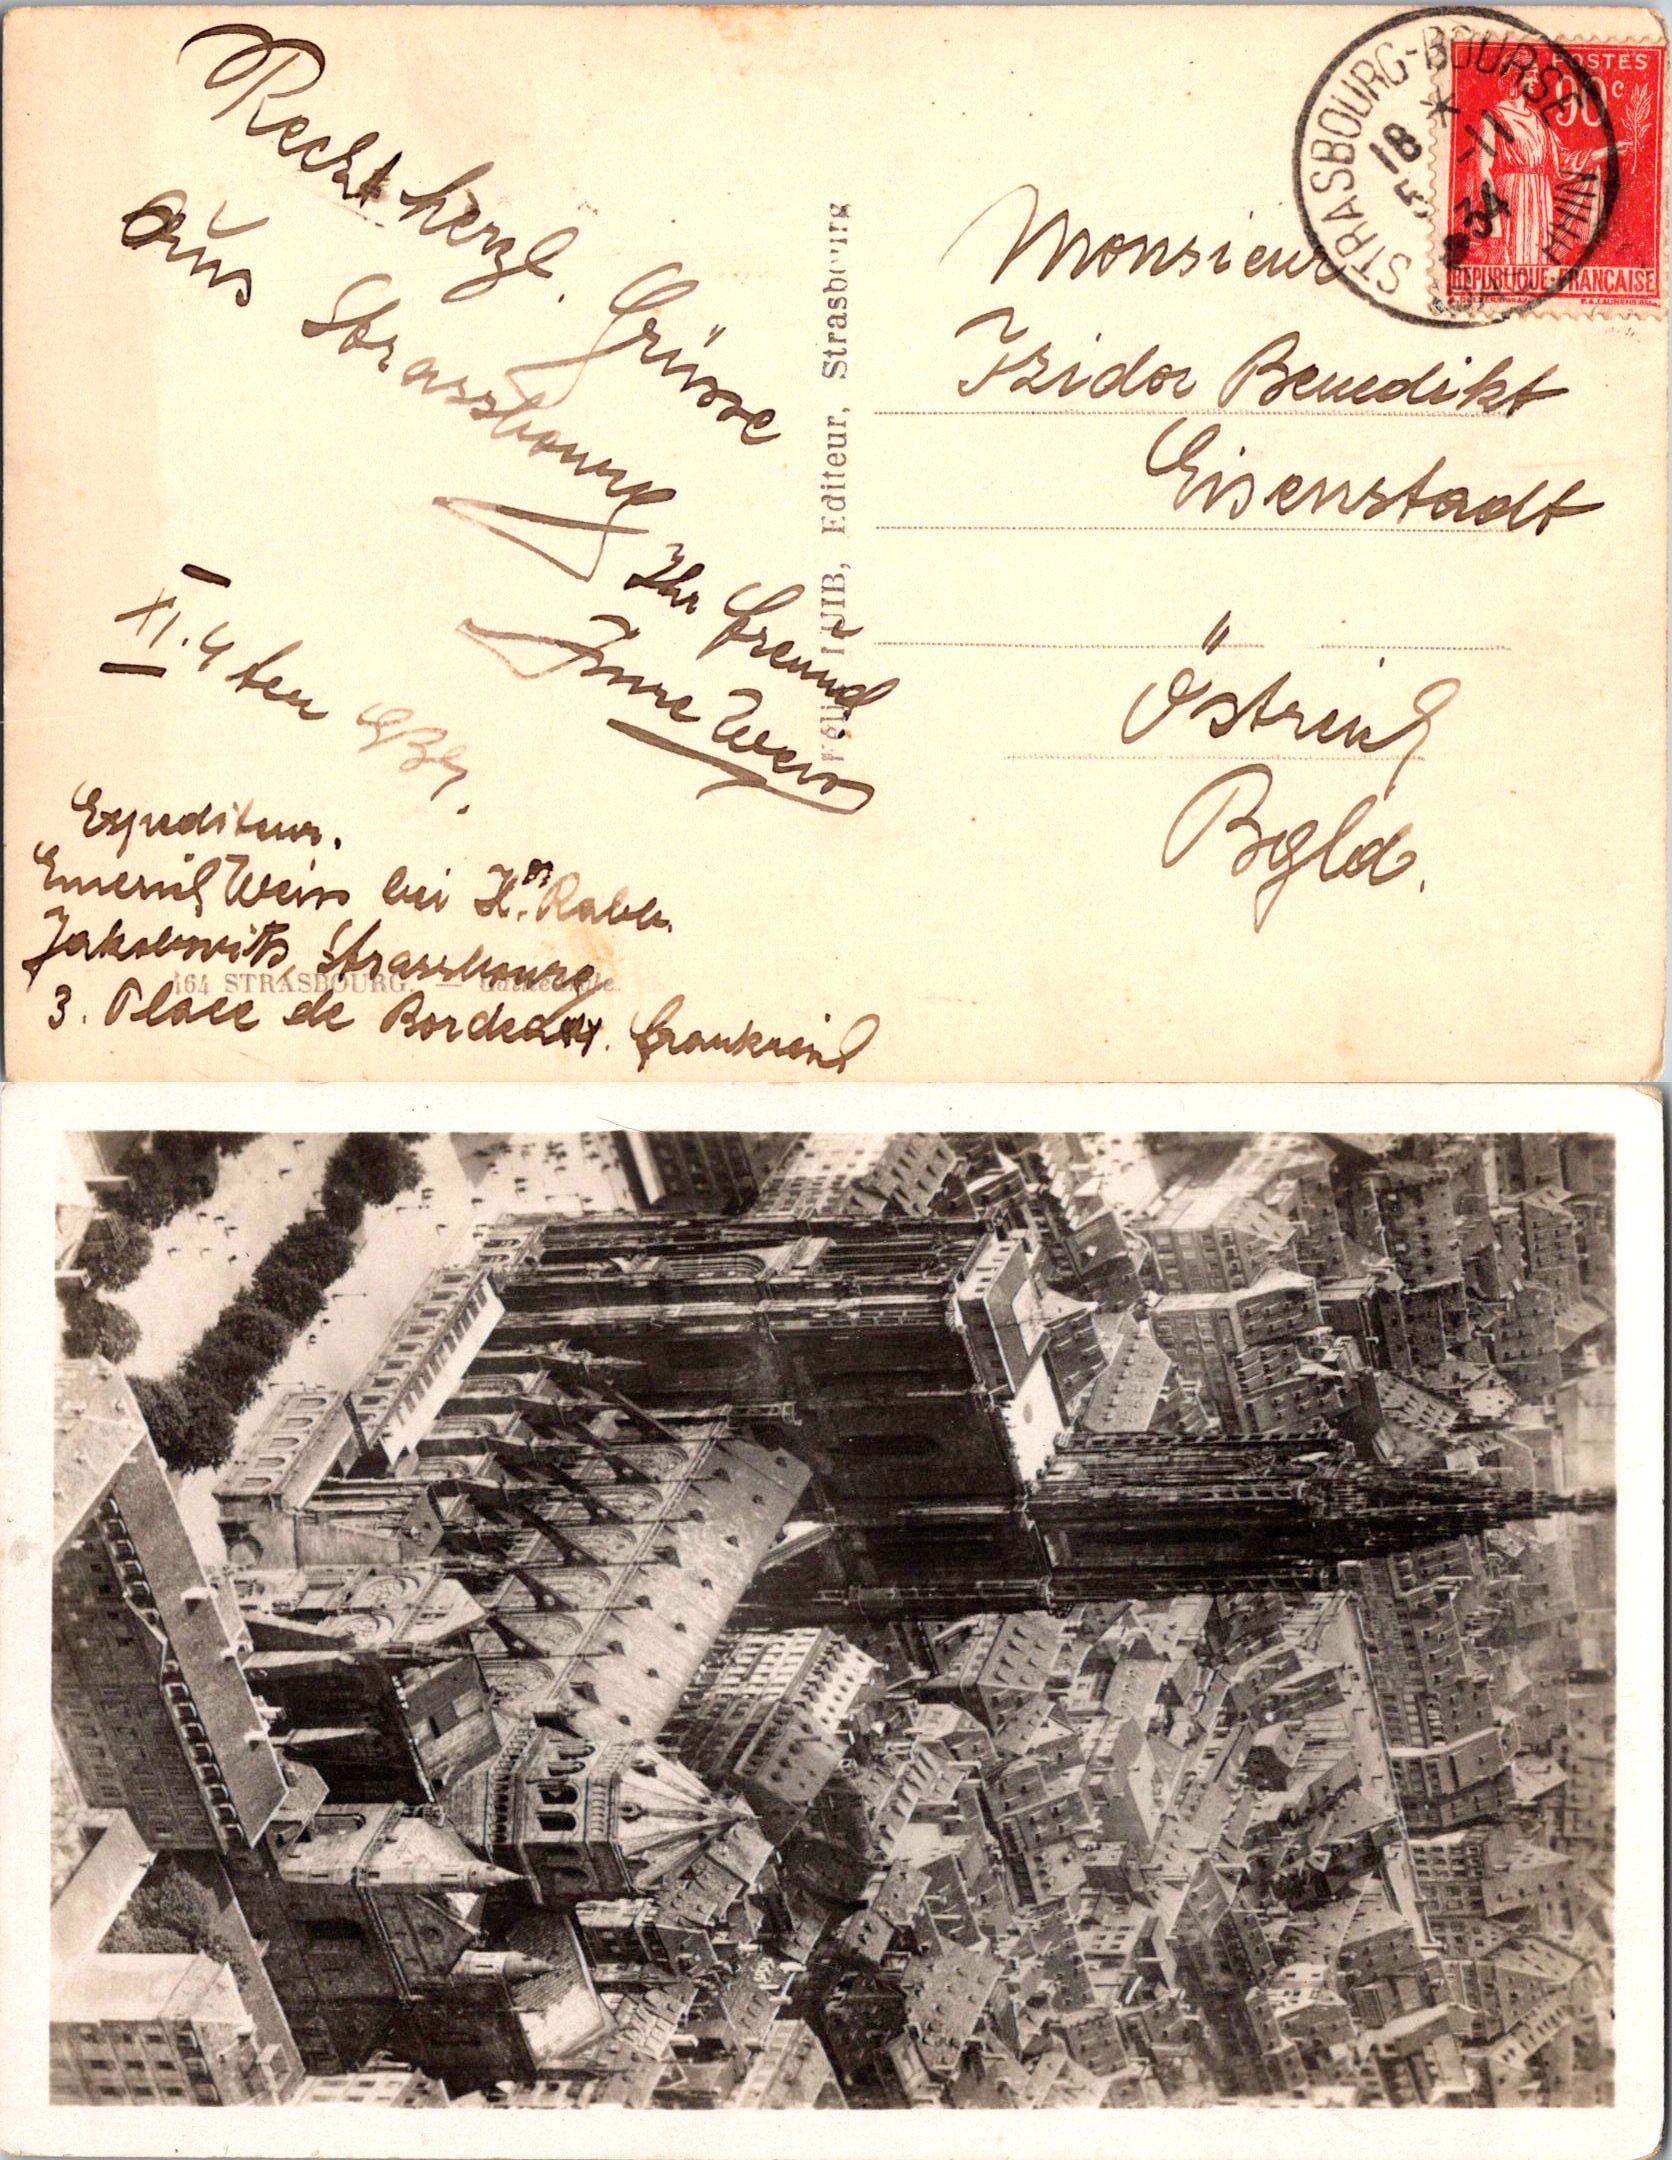 Recht herzl. Grüsse
aus Strassbourg
Ihr Freund
Imre Weiss
XI. 4 ten
Expediteur.
Emerich Weiss bei H. Rabb.
Jakobovits Strassbourg
3. Place de Bordeaux. Frankreich
164 STRASBOURG. — Cathédrale.
Editeur, Strasbourg
STRASBOURG-BOURSE
18
5 -11
34
POSTES
90c
REPUBLIQUE-FRANÇAISE
Monsieur
Izidor Benedikt
Eisenstadt
Östreich
Bgld.